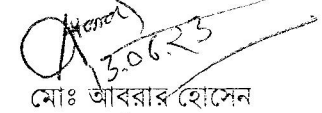 13.06.23
মোঃ আবরার হোসেন